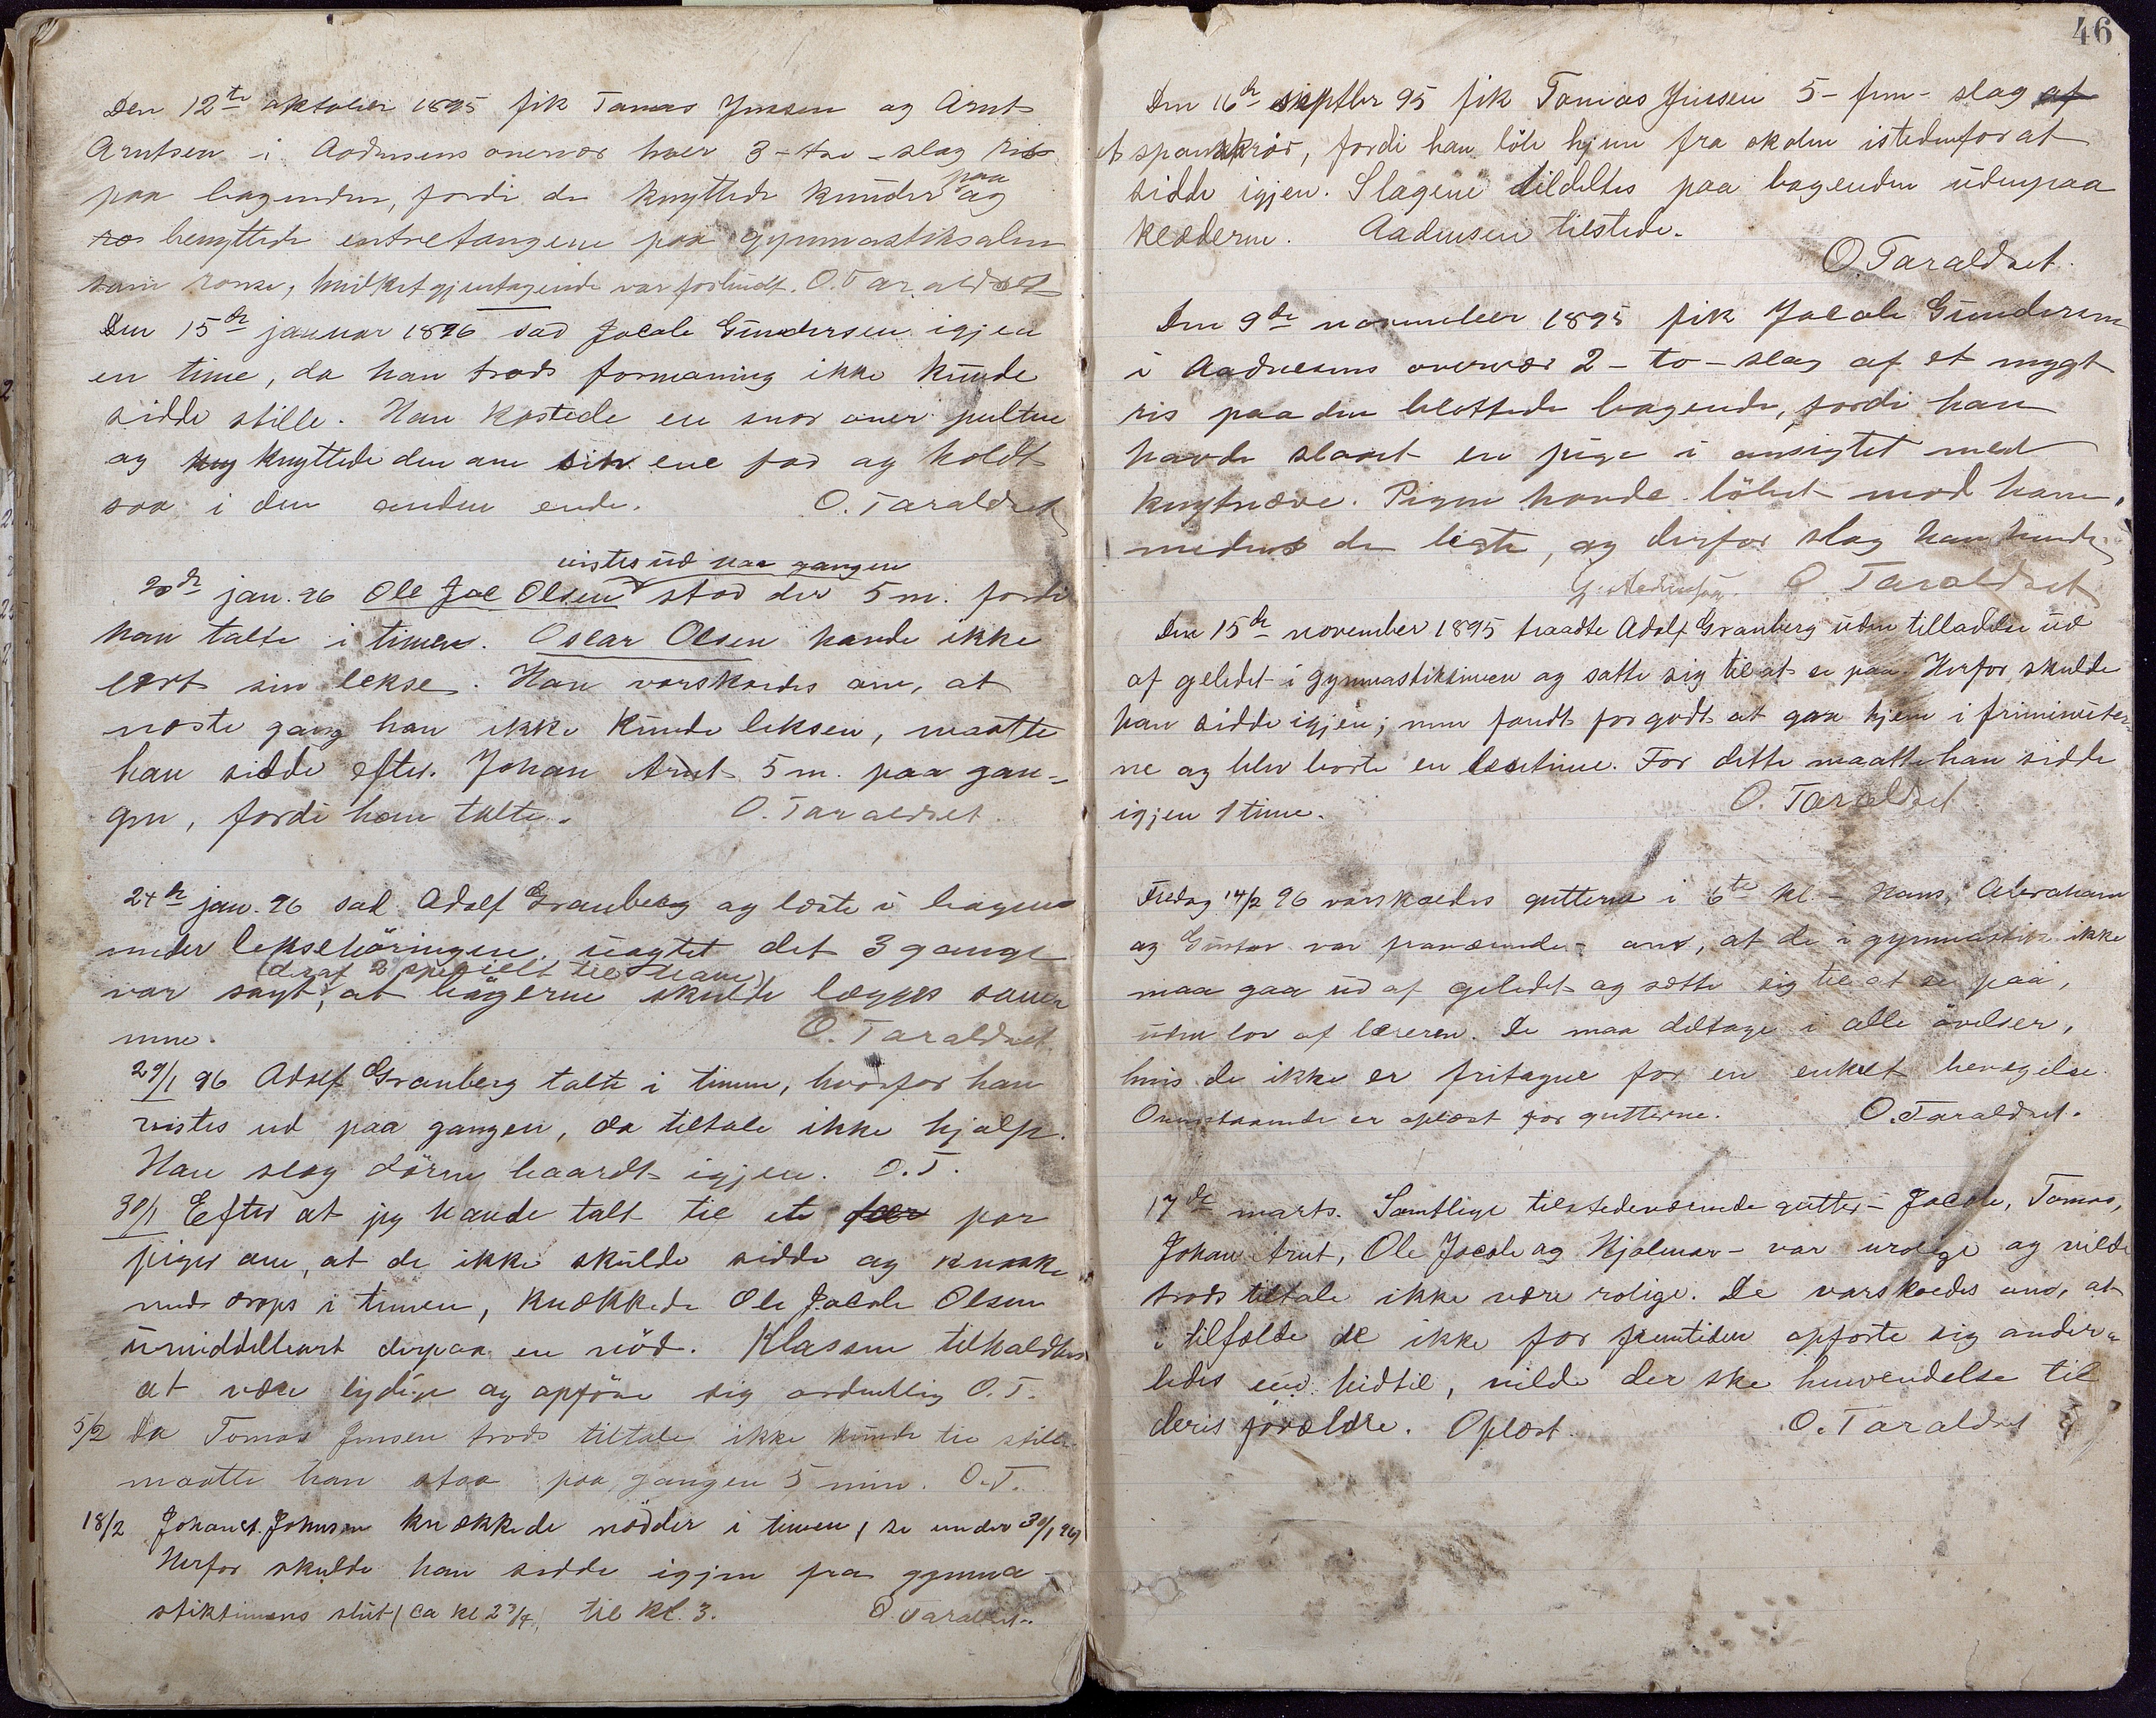 Den 12te oktober 1895 fik Tomas Jensen og Arnt
Arntsen i Aadnesens overvær hver 3 - tre - slag ris
paa bagenden, fordi de knyttede kunder paa og
benyttede entretangene paa gymnastiksalen
som ronse, hvilket gjentagende var forbudt. O. Taraldset
Den 15de januar 1896 sad Jacob Gundersen igjen
en time, da han trods formaning ikke kunde
sidde stille. Han kastede en snor over pulten
og knyttede den om sin ene fod og holdt
saa i den anden ende. O. Taraldset
vistes ud paa gangen
20de jan. 96 Ole Jac Olsen stod der 5 m. fordi
han talte i timen. Oscar Olsen havde ikke
lært sin lekse. Han varskoedes om, at
næste gang han ikke kunde leksen, maatte
han sidde efter. Johan Arnt 5 m. paa gan-
gen, fordi han talte. O. Taraldset.
24de jan. 96 sad Adolf Granberg og læste i bogen
under leksehöringen uagtet det 3 gange
(deraf 2 specielt til ham)
var sagt, at bögerne skulde lægges sam
men. O. Taraldset
29/1 96 Adolf Granberg talte i timen, hvorfor han
vistes ud paa gangen, da tiltale ikke hjalp.
Han slog dören haardt igjen. O.T.
30/1 Efter at jeg havde talt til et par
piger om, at de ikke skulde sidde og knaske
med drops i timen, knækkede Ole Jacob Olsen
umiddelbart derpaa en nöd. Klassen tilholdtes
at være lydige og opföre sig ordentlig O.T.
5/2 Da Tomas Jensen trods tiltale ikke kunde tie stille
maatte han staa paa gangen 5 min. O.T.
18/2 Johan A. Johnsen knækkede nödder i timen (se under 30/1 96)
Herfor skulde han sidde igjen fra gymna-
stiktimens slut (ca kl 2 3/4) til kl. 3. O. Taraldset.
46
Den 16de septbr 95 fik Tomas Jensen 5 - fem - slag af
et spanskrör, fordi han löb hjem fra skolen istedenfor at
sidde igjen. Slagene tildeltes paa bagenden udenpaa
klæderne. Aadnesen tilstede.
O. Taraldset.
Den 9de november 1895 fik Jacob Gundersen
i Aadnesens overvær 2 - to - slag af et nygt
ris paa den blottede bagende, fordi han
havde slaaet en pige i ansigtet med
knytnæve. Pigen havde löbet mod ham,
medens de legte, og derfor slog han hende.
G. Aadnesen. O. Taraldset
Den 15de november 1895 traadte Adolf Granberg uden tilladelse ud
af geledet i gymnastiktimen og satte sig til at se paa. Herfor skulde
han sidde igjen; men fandt for godt at gaa hjem i friminuter
ne og blev borte en læsetime. For dette maatte han sidde
igjen 1 time. O. Taraldset
Fredag 14/2 96 varskoedes gutterne i 6te kl. - Hans, Abraham
og Gustav var fraværende - om, at de i gymnastik ikke
maa gaa ud af geledet og sætte sig til at se paa,
uden lov af læreren. De maa deltage i alle övelser,
hvis de ikke er fritagne for en enkelt bevægelse.
Ovenstaaende er oplæst for gutterne. O. Taraldset.
17de marts. Samtlige tilstedeværende gutter - Jacob, Tomas,
Johan Arnt, Ole Jacob og Hjalmar - var urolige og vilde
trods tiltale ikke være rolige. De varskoedes om, at
i tilfælde de ikke for fremtiden opförte sig ander-
ledes end hidtil, vilde der ske henvendelse til
deres forældre. Oplæst. O. Taraldset